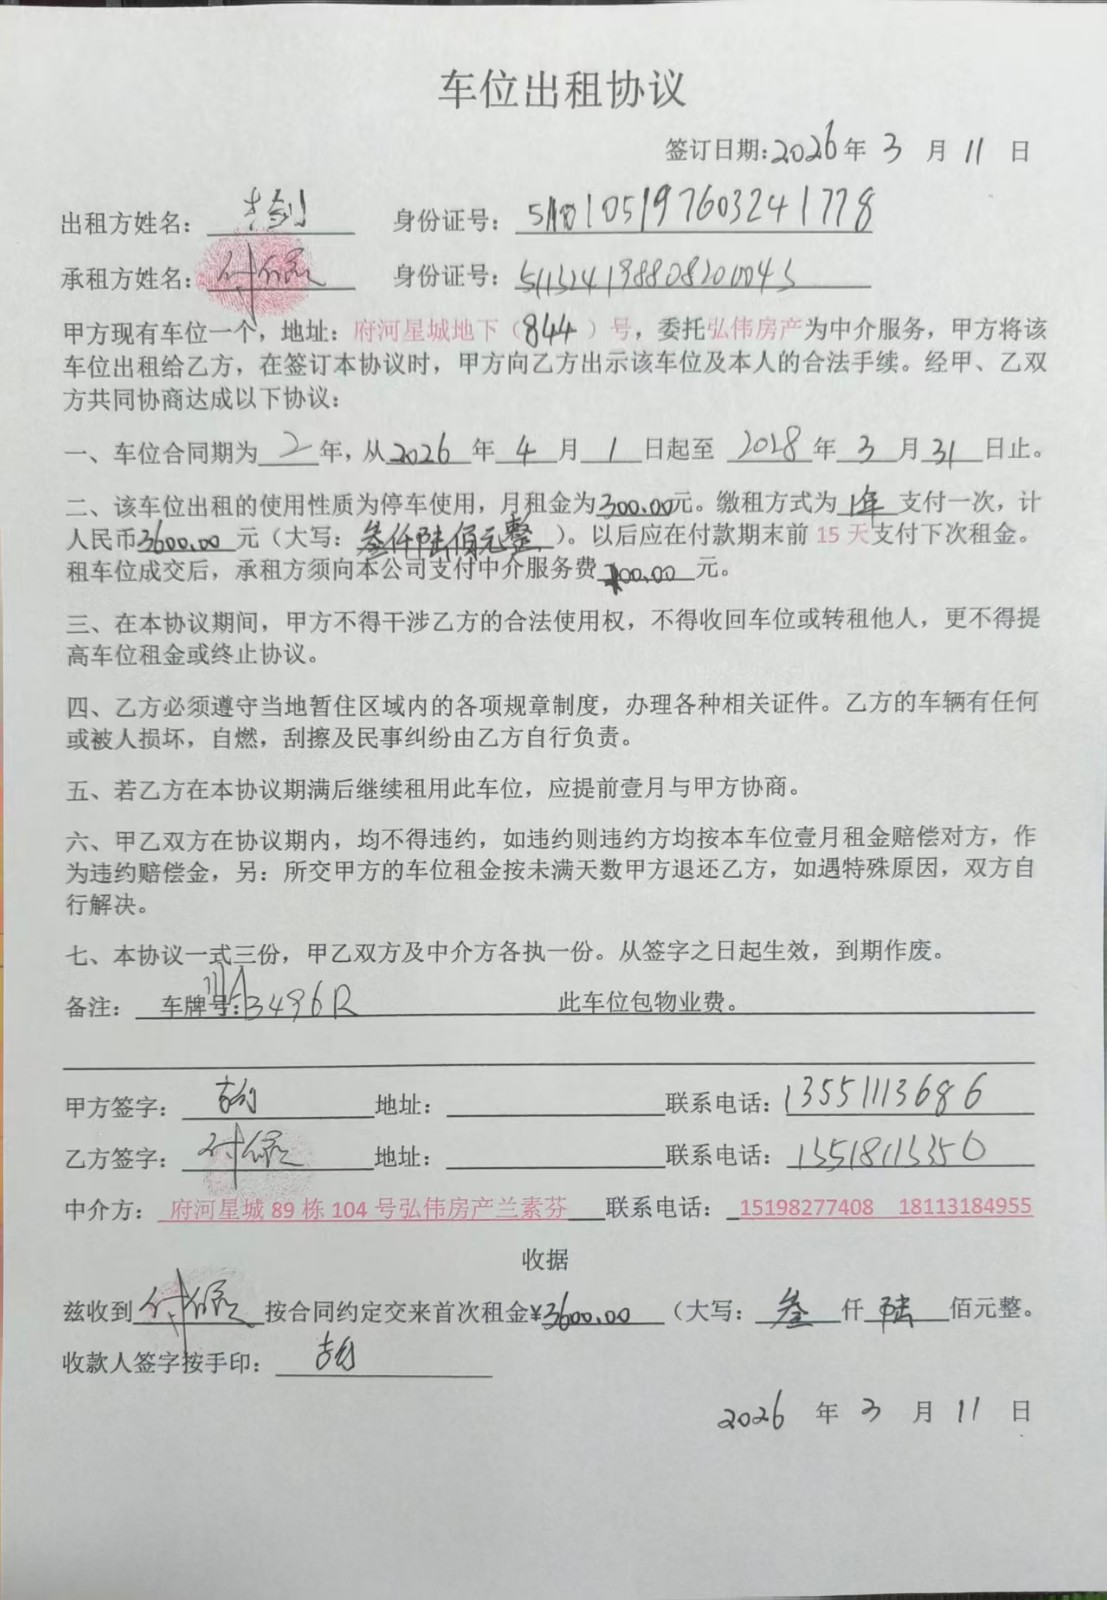 车位出租协议
签订日期:2026年 3 月 11 日
出租方姓名: 身份证号:
承租方姓名: 付 身份证号:
甲方现有车位一个，地址：府河星城地下（844）号，委托弘伟房产为中介服务，甲方将该
车位出租给乙方，在签订本协议时，甲方向乙方出示该车位及本人的合法手续。经甲、乙双
方共同协商达成以下协议：
一、车位合同期为 2 年，从2026 年 4 月 1 日起至 2028 年 3 月 31 日止。
二、该车位出租的使用性质为停车使用，月租金为300.00元。缴租方式为 1年 支付一次，计
人民币3600.00 元（大写：叁仟陆佰元整）。以后应在付款期末前 15 天支付下次租金。
租车位成交后，承租方须向本公司支付中介服务费 100.00 元。
三、在本协议期间，甲方不得干涉乙方的合法使用权，不得收回车位或转租他人，更不得提
高车位租金或终止协议。
四、乙方必须遵守当地暂住区域内的各项规章制度，办理各种相关证件。乙方的车辆有任何
或被人损坏，自燃，刮擦及民事纠纷由乙方自行负责。
五、若乙方在本协议期满后继续租用此车位，应提前壹月与甲方协商。
六、甲乙双方在协议期内，均不得违约，如违约则违约方均按本车位壹月租金赔偿对方，作
为违约赔偿金，另：所交甲方的车位租金按未满天数甲方退还乙方，如遇特殊原因，双方自
行解决。
七、本协议一式三份，甲乙双方及中介方各执一份。从签字之日起生效，到期作废。
备注： 车牌号:川AB496R 此车位包物业费。
甲方签字： 地址： 联系电话：13551113686
乙方签字： 付 地址： 联系电话：13518113350
中介方： 府河星城 89 栋 104 号弘伟房产兰素芬 联系电话： 15198277408 18113184955
收据
兹收到 付 按合同约定交来首次租金¥3600.00 （大写： 叁 仟 陆 佰元整。
收款人签字按手印：
2026 年 3 月 11 日